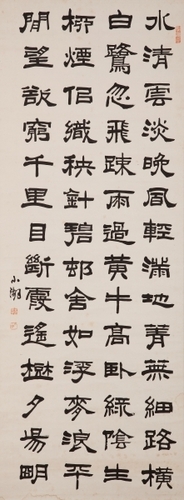 水清雲淡晚風輕滿地菁蕪細路橫
白鷺忽飛踈雨過黃牛高臥綠陰生
桺煙佀織秧針碧邨舍如浮麥浪平
閒望欲窮千里目斷霞遙夕陽明
小湖